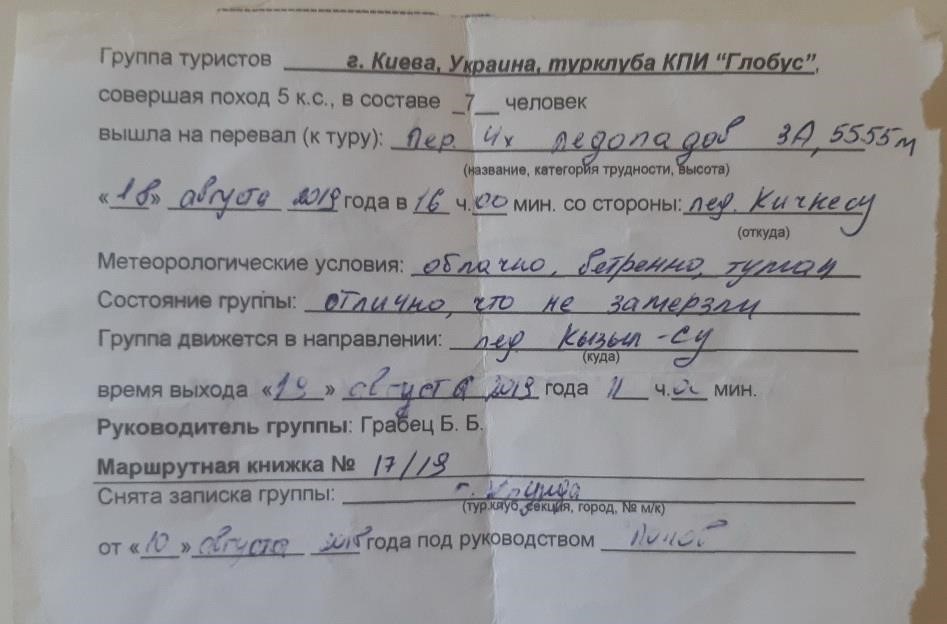 Группа туристов г. Киева, Украина, турклуба КПИ “Глобус”,
совершая поход 5 к.с., в составе _7_ человек
вышла на перевал (к туру): пер. 4х ледопадов 3А, 5555м
(название, категория трудности, высота)
«18» августа 2019 года в 16 ч. 00 мин. со стороны: лед. Кичкесу
(откуда)
Метеорологические условия: облачно, ветренно, туман
Состояние группы: отлично, что не замерзли
Группа движется в направлении: лед Кызыл-Су
(куда)
время выхода «19» августа 2019 года 11 ч. 00 мин.
Руководитель группы: Грабец Б. Б.
Маршрутная книжка № 17/19
Снята записка группы: г.
(тур.клуб, секция, город, № м/к)
от «10» августа 2018 года под руководством